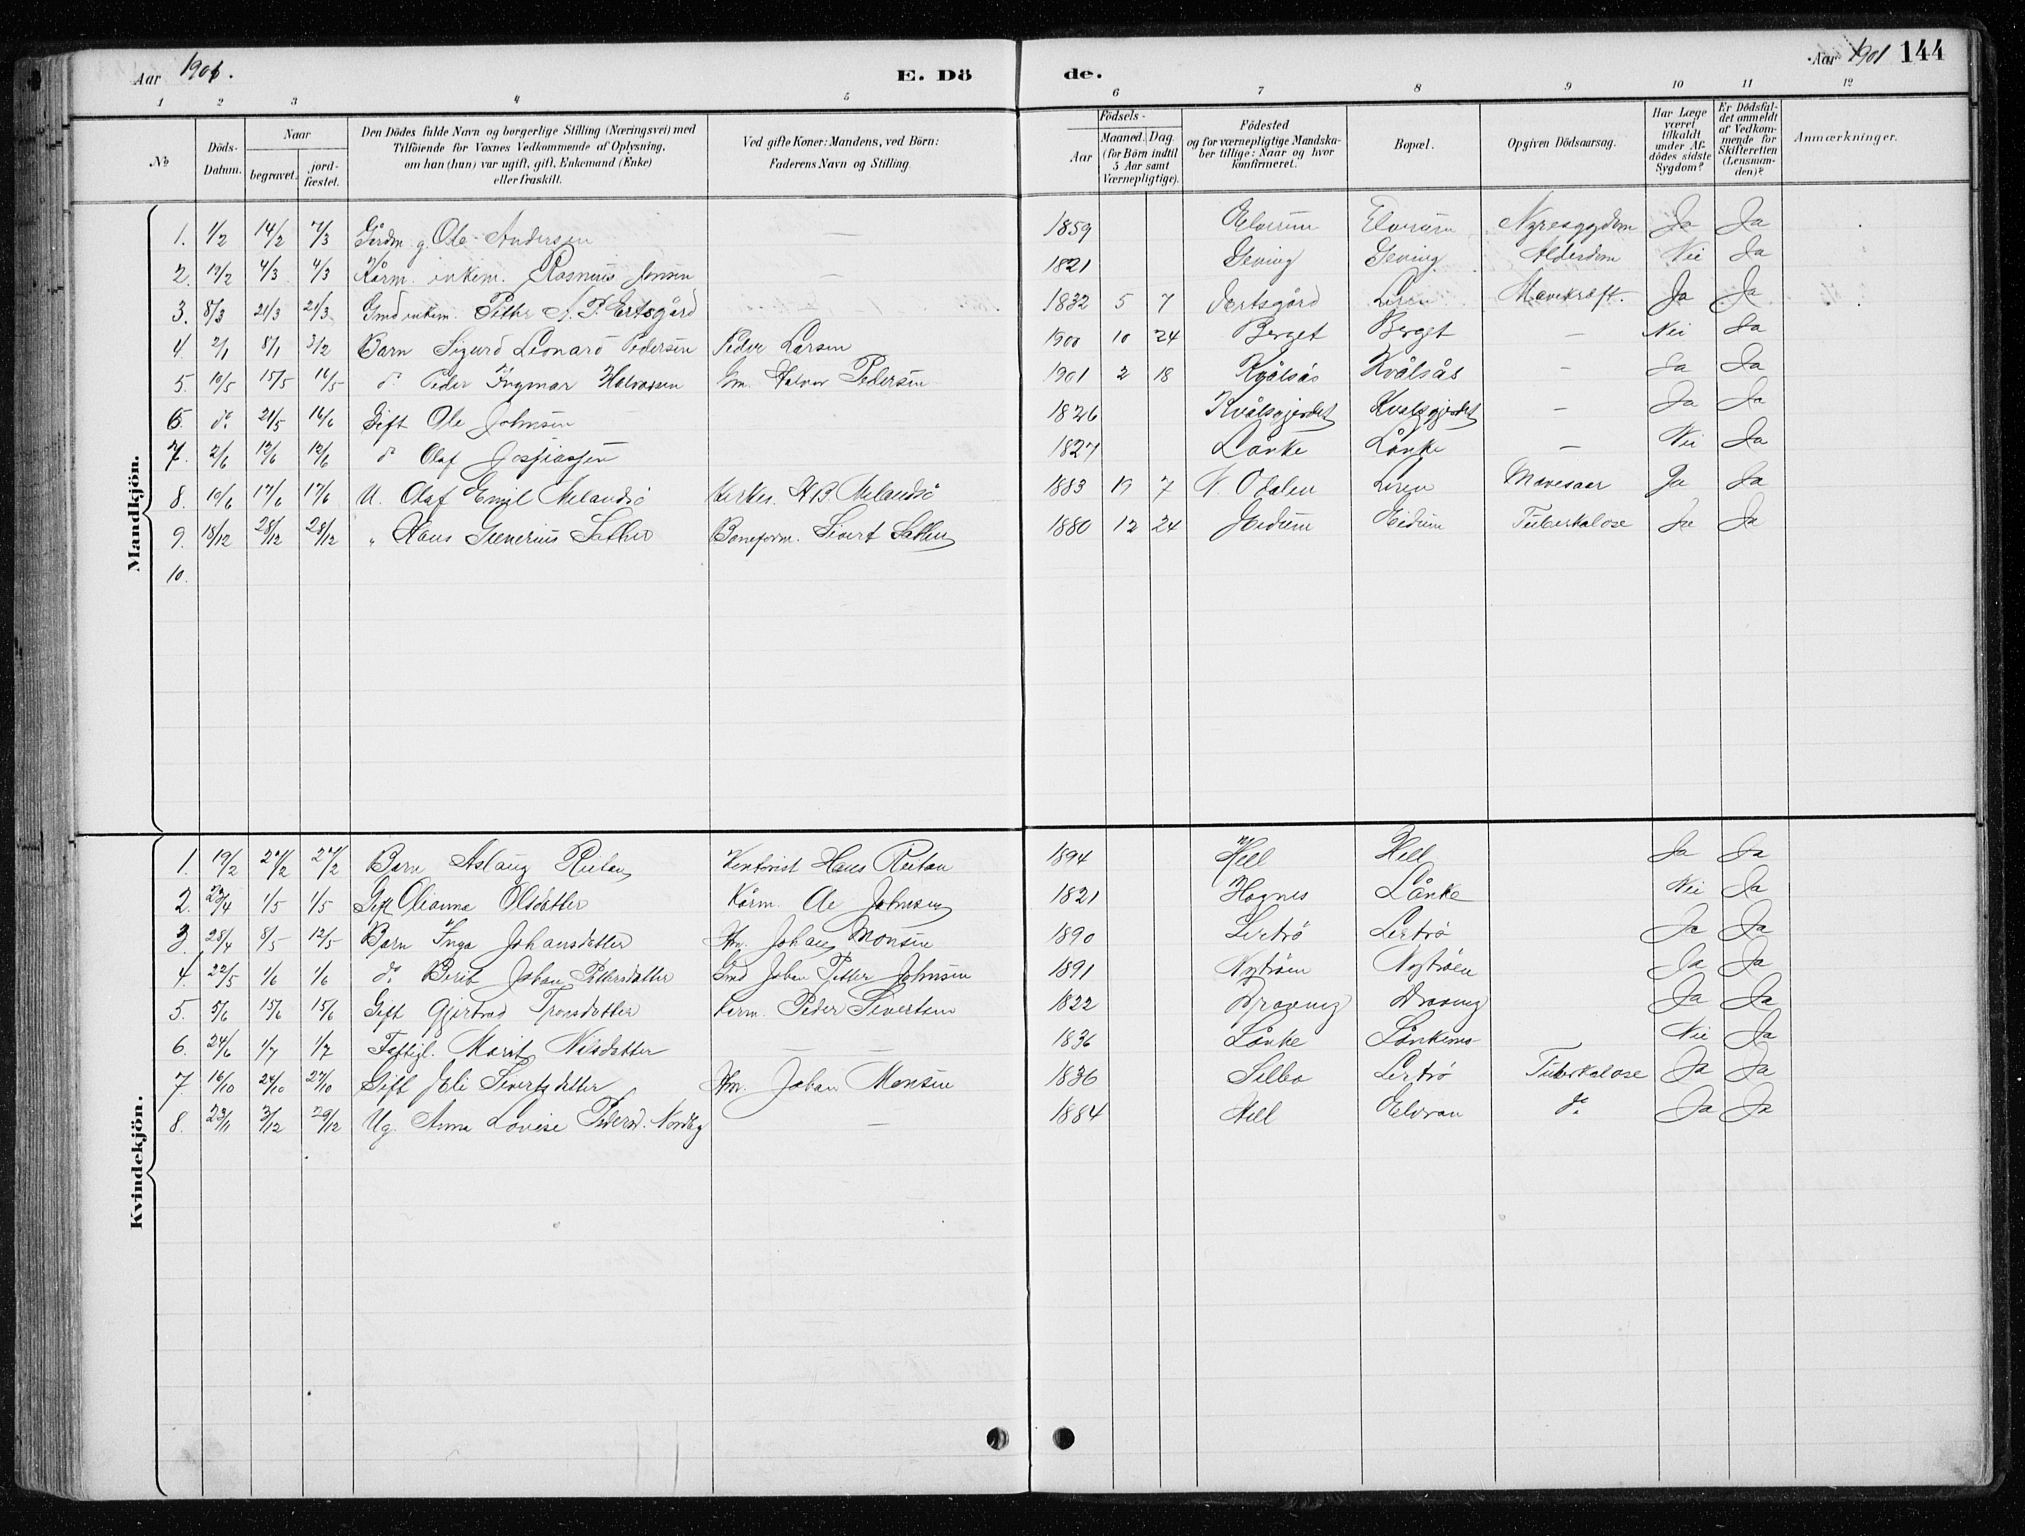 Aar 1901. E. Dö de. Aar 1901 144
1 2 3 4 5 6 7 8 9 10 11 12
No
Döds-Datum.
Naar
begravet.
jord-fæstet.
Den Dödes fulde Navn og borgerlige Stilling (Næringsvei) med
Tilföiende for Voxnes Vedkommende af Oplysning,
om han (hun) var ugift, gift, Enkemand (Enke)
eller fraskilt.
Ved gifte Koner: Mandens, ved Börn:
Faderens Navn og Stilling.
Födsels-
Aar
Maaned. Dag.
(for Börn indtil
5 Aar samt
Værnepligtige).
Födested
og for værnepligtige Mandska-
ber tillige: Naar og hvor
konfirmeret.
Bopæl.
Opgiven Dödsaarsag.
Har Læge
været
tilkaldt
under Af-
dödes sidste
Sygdom?
Er Dödsfal-
det anmeldt
af Vedkom-
mende for
Skifteretten
(Lensman-
den)?
Anmærkninger.
Mandkjön.
1. 1/2 14/2 7/3 Gårdm. g. Ole Andersen — 1859 Elverum Elverum Nyresygdom Ja Ja
2. 19/2 4/3 4/3 Kårm. enkem. Rasmus Jensen 1821 Geving Geving Alderdom Nei Ja
3. 8/3 21/3 21/3 Gmd enkem. Petter A. P. Ertsgård 1832 5 7 Ertsgård Leren Mavekræft. Ja Ja
4. 2/1 8/1 3/2 Barn Sigurd Leonard Pedersen Peder Larsen 1900 10 24 Berget Berget — Nei Ja
5. 10/5 15/5 16/5 do Peder Ingmar Halvorsen Gm. Halvor Pedersen 1901 2 18 Kvålsås Kvålsås — Ja Ja
6. do 21/5 16/6 Gift Ole Johnsen 1826 Kvålsgjerdet Kvålsgjerdet — Ja Ja
7. 2/6 12/6 12/6 do Olaf 1827 Lånke Lånke — Nei Ja
8. 10/6 17/6 17/6 U. Olaf Emil Melandsö H B Melandsö 1883 7 N. Odalen Leren Mavesaar Ja Ja
9. 18/12 28/12 28/12 " Hans Severius Sather Baneform. Sivert Sather 1880 12 24 Eidum Tuberkulose Ja Ja
10.
Kvindekjön.
1. 19/2 27/2 27/2 Barn Aslaug Reitan Hans Reitan 1894 Hell Hell Ja Ja
2. 23/4 1/5 1/5 Gift Olianna Olsdatter Kårm. Ole Johnsen 1821 Hognes Lånke Nei Ja
3. 28/4 8/5 12/5 Barn Inga Johansdatter Hm. Johan Monsen 1890 Lertrö Lertrö Ja Ja
4. 22/5 1/6 1/6 do Berit Johan Pettersdatter Gmd Johan Petter Johnsen 1891 Nytröen Nytröen Ja Ja
5. 5/6 15/6 15/6 Gift Gjertrud Tronsdatter Kårm. Peder Sivertsen 1822 Dravng Dravng Ja Ja
6. 24/6 1/7 1/7 Fattigl. Marit Nilsdatter — — 1836 Lånke Nei Ja
7. 16/10 24/10 27/10 Gift Eli Sivertsdatter Hm. Johan Monsen 1836 Selbo Lertrö Tuberkulose Ja Ja
8. 23/11 3/12 29/12 Ug. Anna Lovise Pedersd. — 1884 Hell Elvran do Ja Ja